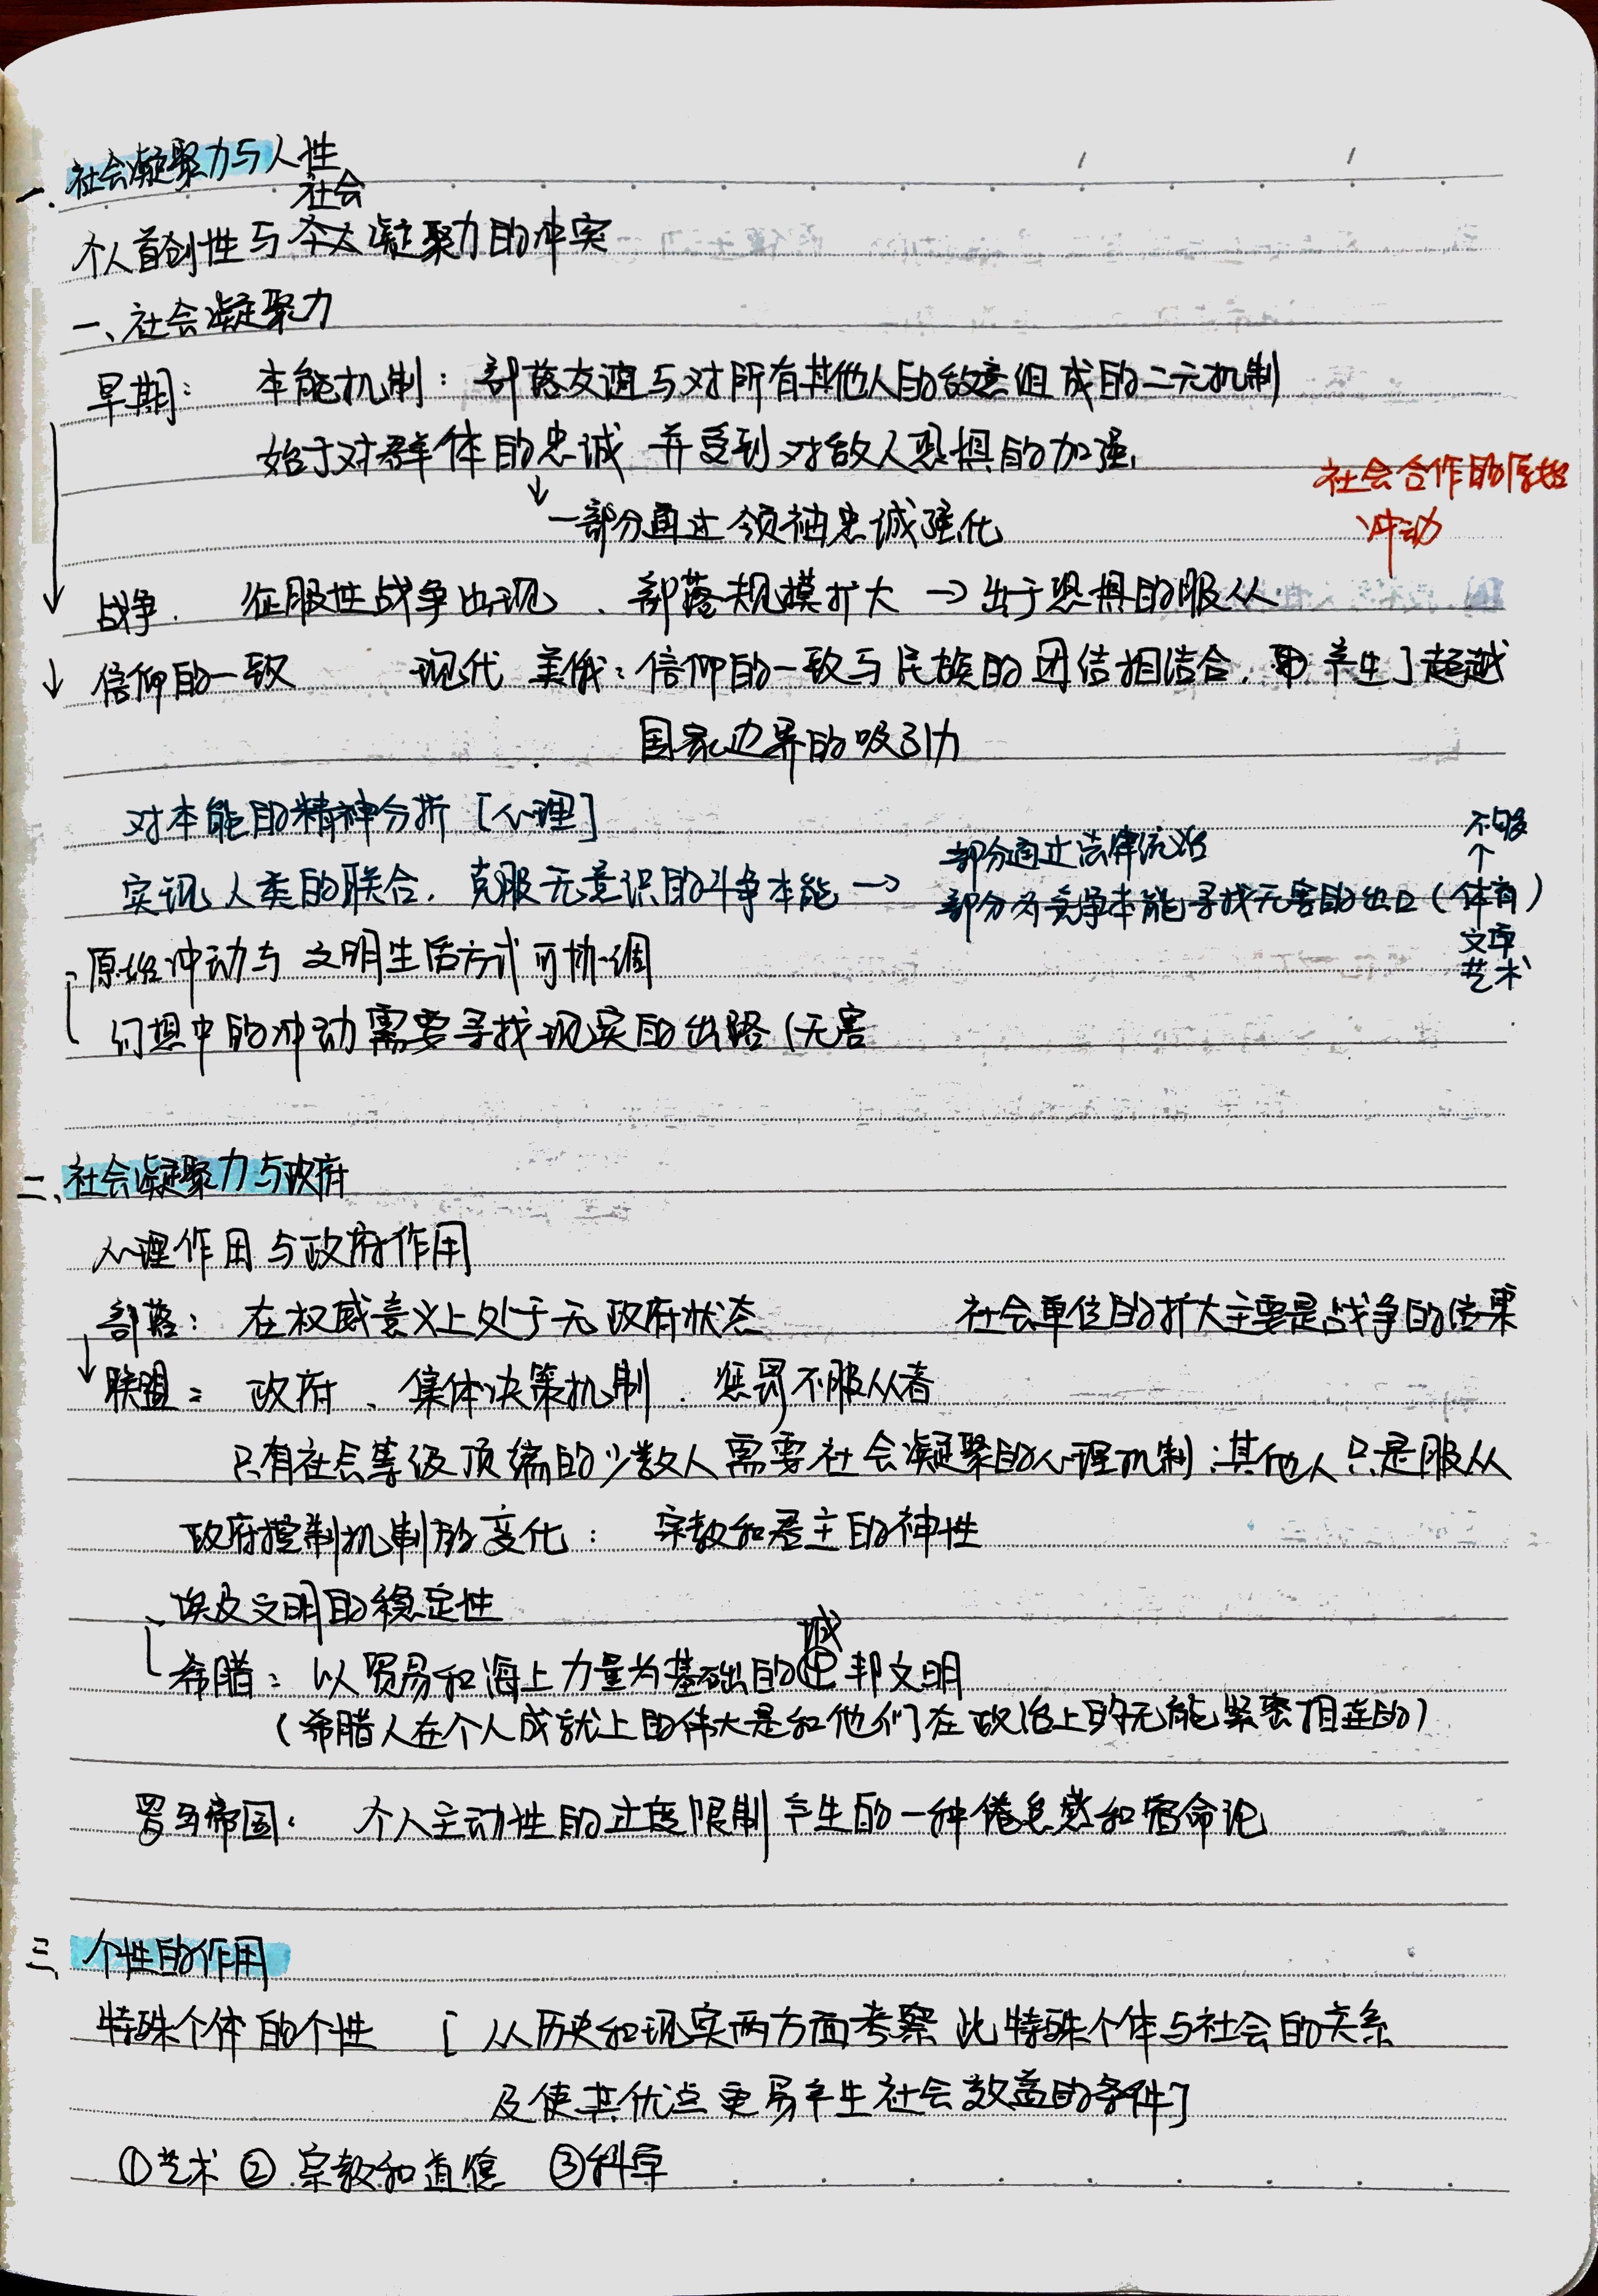 一、社会凝聚力与人性
社会
个人首创性与个人凝聚力的冲突
一、社会凝聚力
早期： 本能机制：部落友谊与对所有其他人的敌意组成的二元机制
始于对群体的忠诚 并受到对敌人恐惧的加强，
↓
一部分通过领袖忠诚强化
社会合作的原始
冲动
战争． 征服性战争出现、部落规模扩大 → 出于恐惧的服从
↓ 信仰的一致 现代 美俄：信仰的一致与民族的团结相结合，产生了超越
国家边界的吸引力
对本能的精神分析［心理］
实现人类的联合，克服无意识的斗争本能 →
部分通过法律统治
部分为竞争本能寻找无害的出口（体育）
不够
↑
文章
艺术
原始冲动与文明生活方式可协调
幻想中的冲动需要寻找现实的出路（无害
二、社会凝聚力与政府
心理作用与政府作用
部落： 在权威意义上处于无政府状态 社会单位的扩大主要是战争的结果
↓ 联盟： 政府、集体决策机制．惩罚不服从者
只有社会等级顶端的少数人需要社会凝聚的心理机制；其他人只是服从
政府控制机制的变化： 宗教和君主的神性
埃及文明的稳定性
城
希腊： 以贸易和海上力量为基础的邦文明
（希腊人在个人成就上的伟大是和他们在政治上的无能紧密相连的）
罗马帝国： 个人主动性的过度限制产生的一种倦怠感和宿命论
三、个性的作用
特殊个体的个性 ［从历史和现实两方面考察此特殊个体与社会的关系
及使其优点更易产生社会效益的条件］
①艺术 ②宗教和道德 ③科学